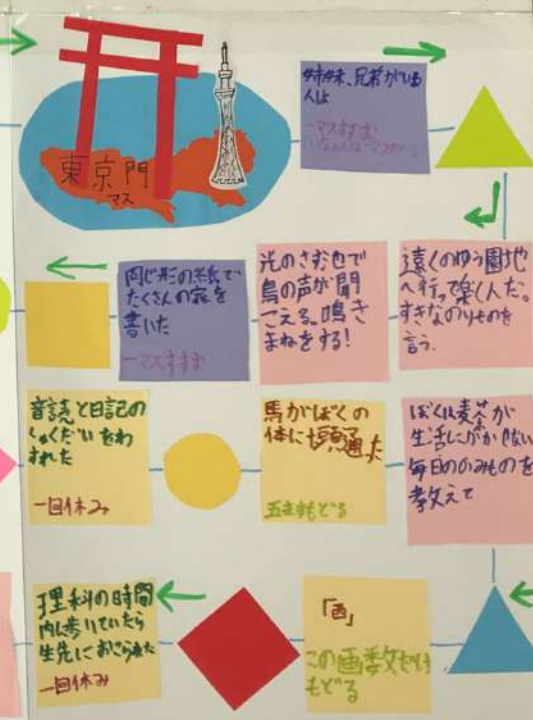 東京門
マス
姉妹、兄弟がいる
人は
一マスすすむ
同じ形の紙で
たくさんの家を
書いた
一マスすすむ
光のさす池で
鳥の声が聞
こえる。鳴き
まねをする!
遠くのゆう園地
へ行って楽しんだ。
すきなのりものを
言う。
音読と日記の
しゅくだいをわ
すれた
一回休み
馬がぼくの
体に
通った
五マスもどる
ぼくは麦茶が
生活に
毎日ののみものを
教えて
理科の時間
内に歩いていたら
先生におこられた
一回休み
「画」
この画数だけ
もどる